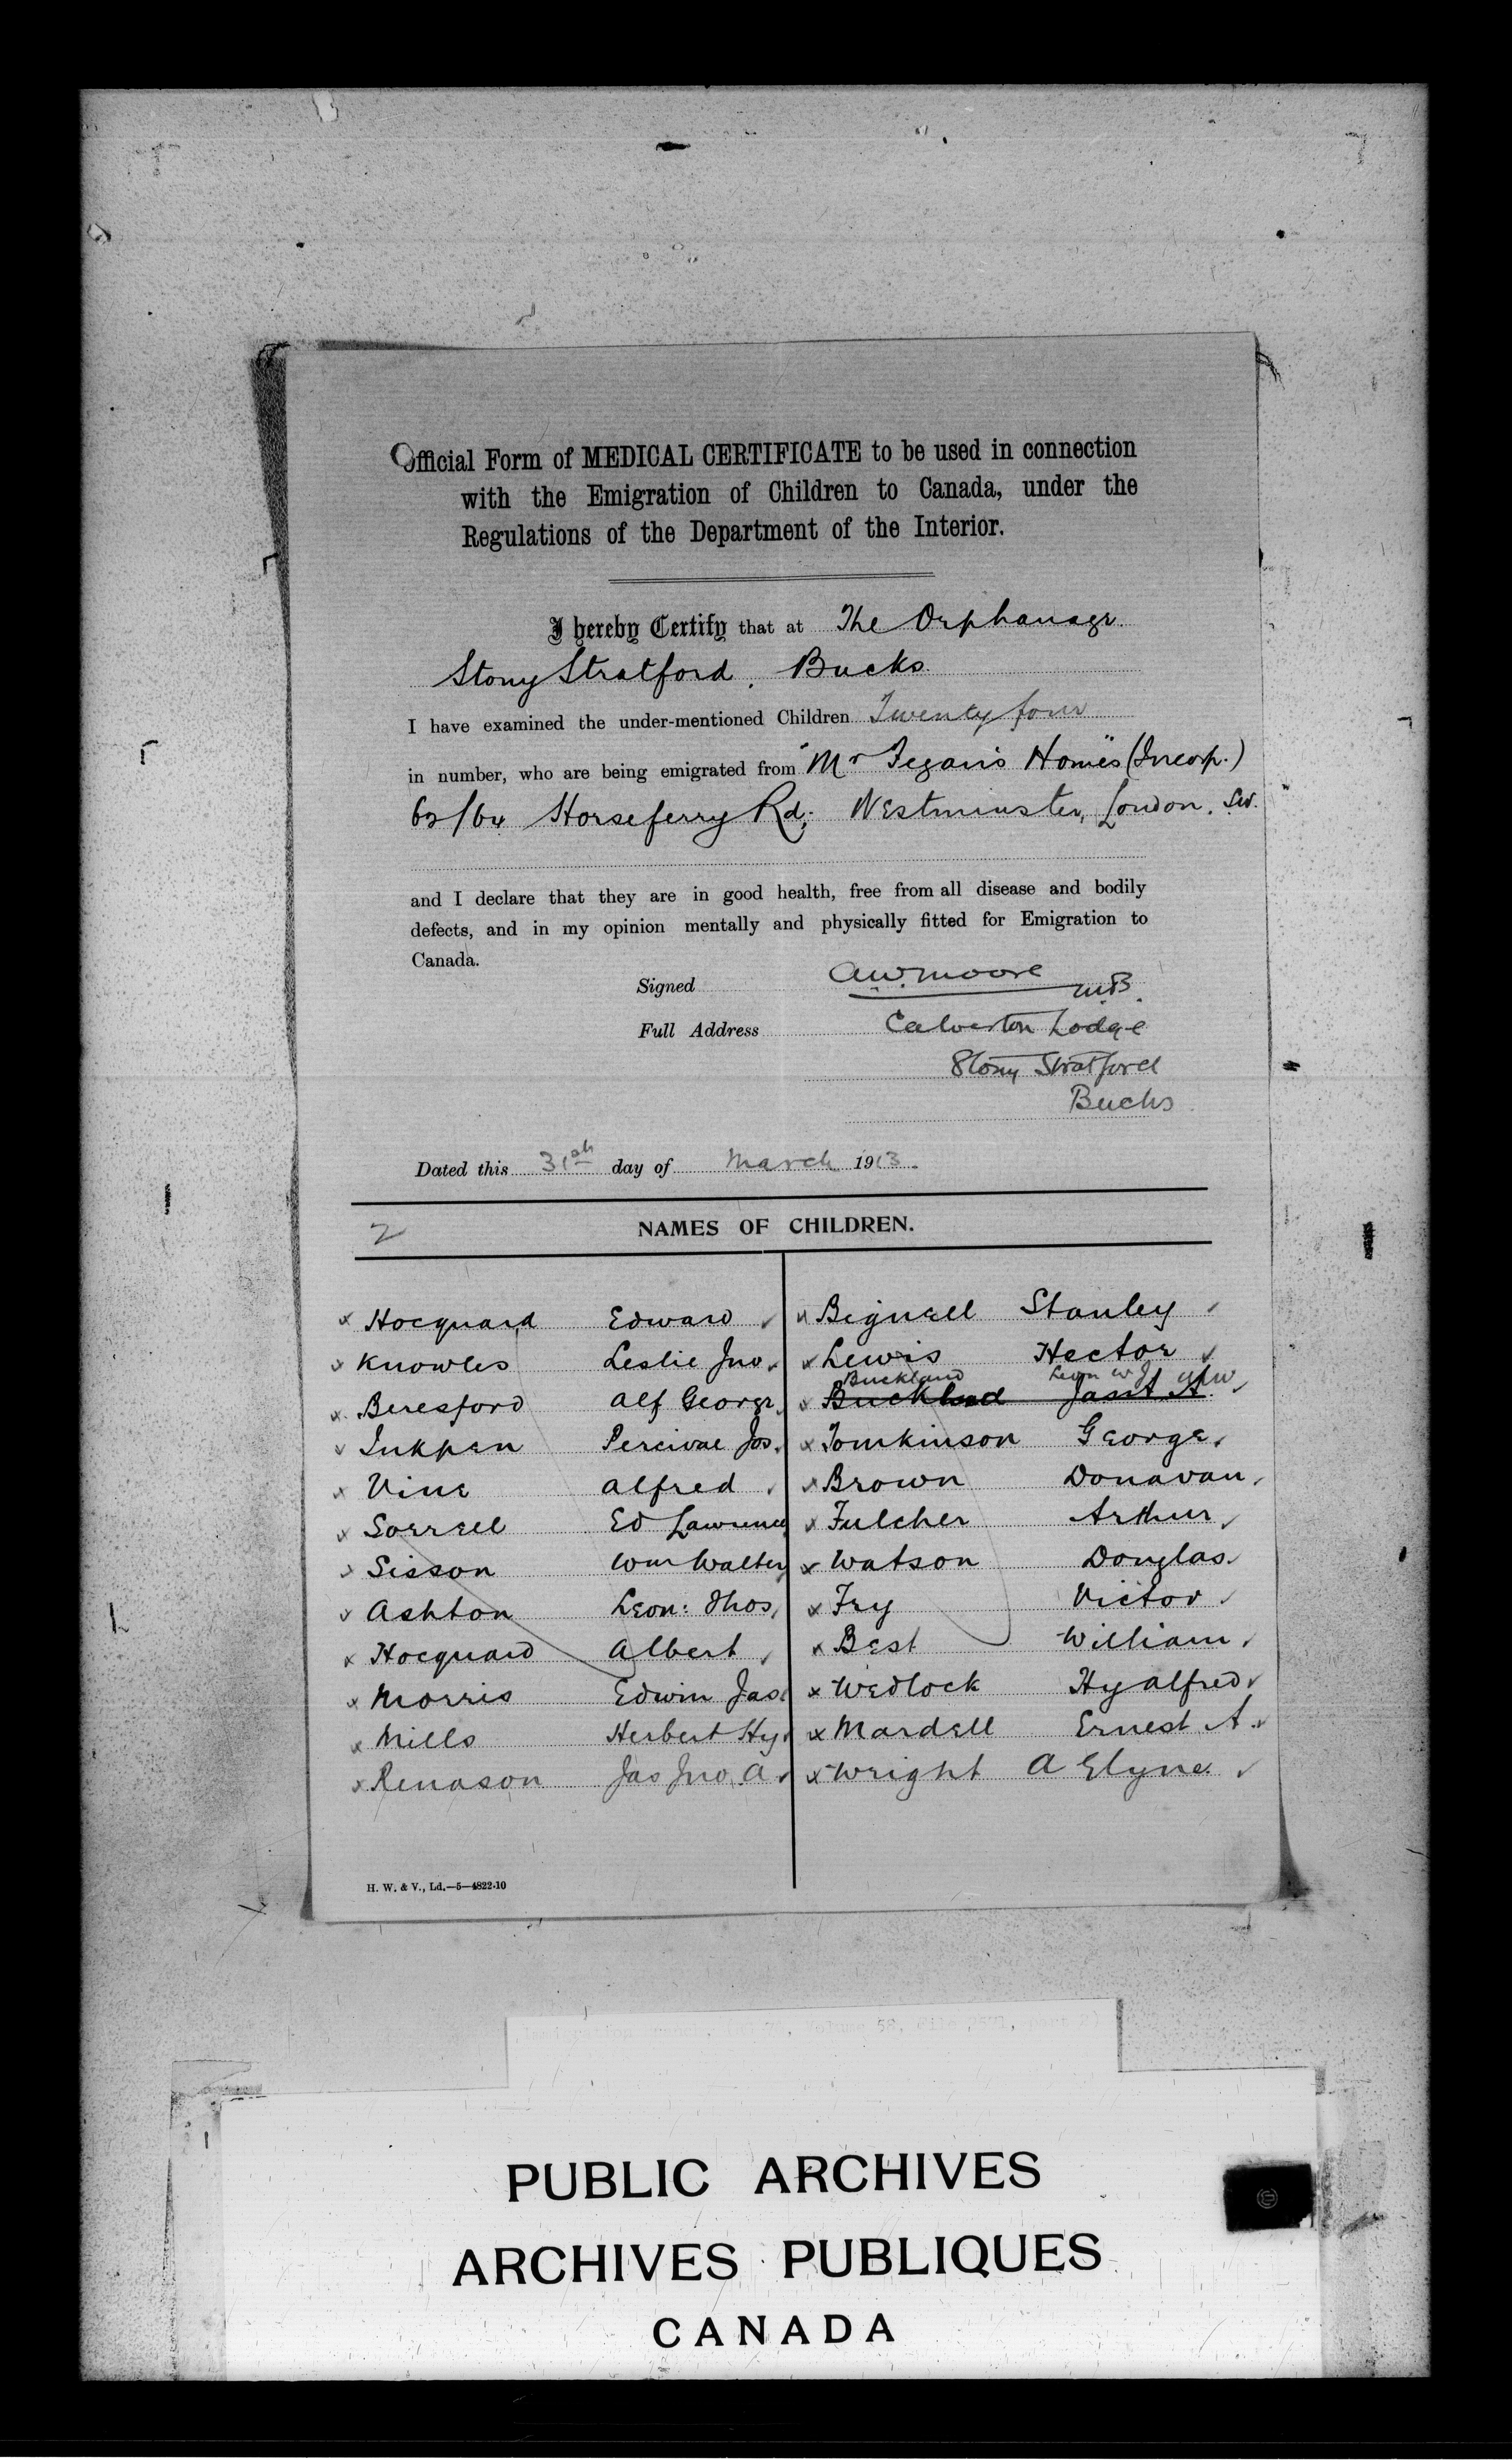 Official Form of MEDICAL CERTIFICATE to be used in connection
with the Emigration of Children to Canada, under the
Regulations of the Department of the Interior.
I hereby Certify that at The Orphanage
Stony Stratford. Bucks
I have examined the under-mentioned Children Twenty four
in number, who are being emigrated from "Mr Fegan's Homes" (Incorp.)
62/64 Horseferry Rd; Westminster, London. SW.
and I declare that they are in good health, free from all disease and bodily
defects, and in my opinion mentally and physically fitted for Emigration to
Canada.
Signed A.W. Moore M.B.
Full Address Calverton Lodge
Stony Stratford
Bucks
Dated this 31st day of March 1913.
2 NAMES OF CHILDREN.
Hocquard Edward
Knowles Leslie Jno.
Beresford Alf George
Inkpen Percival Jos.
Vine Alfred
Sorrell Ed Lawrence
Sisson Wm Walter
Ashton Leon: Thos
Hocquard Albert
Morris Edwin Jas
Mills Herbert Hy
Renason Jas Jno. A
Bignell Stanley
Lewis Hector
Buckland Leon W J
Buckland Jas A
Tomkinson George
Brown Donavan
Fulcher Arthur
Watson Douglas
Fry Victor
Best William
Wedlock Hy Alfred
Mardell Ernest A.
Wright A Elyne
H. W. & V., Ld.—5—4822-10
PUBLIC ARCHIVES
ARCHIVES PUBLIQUES
CANADA